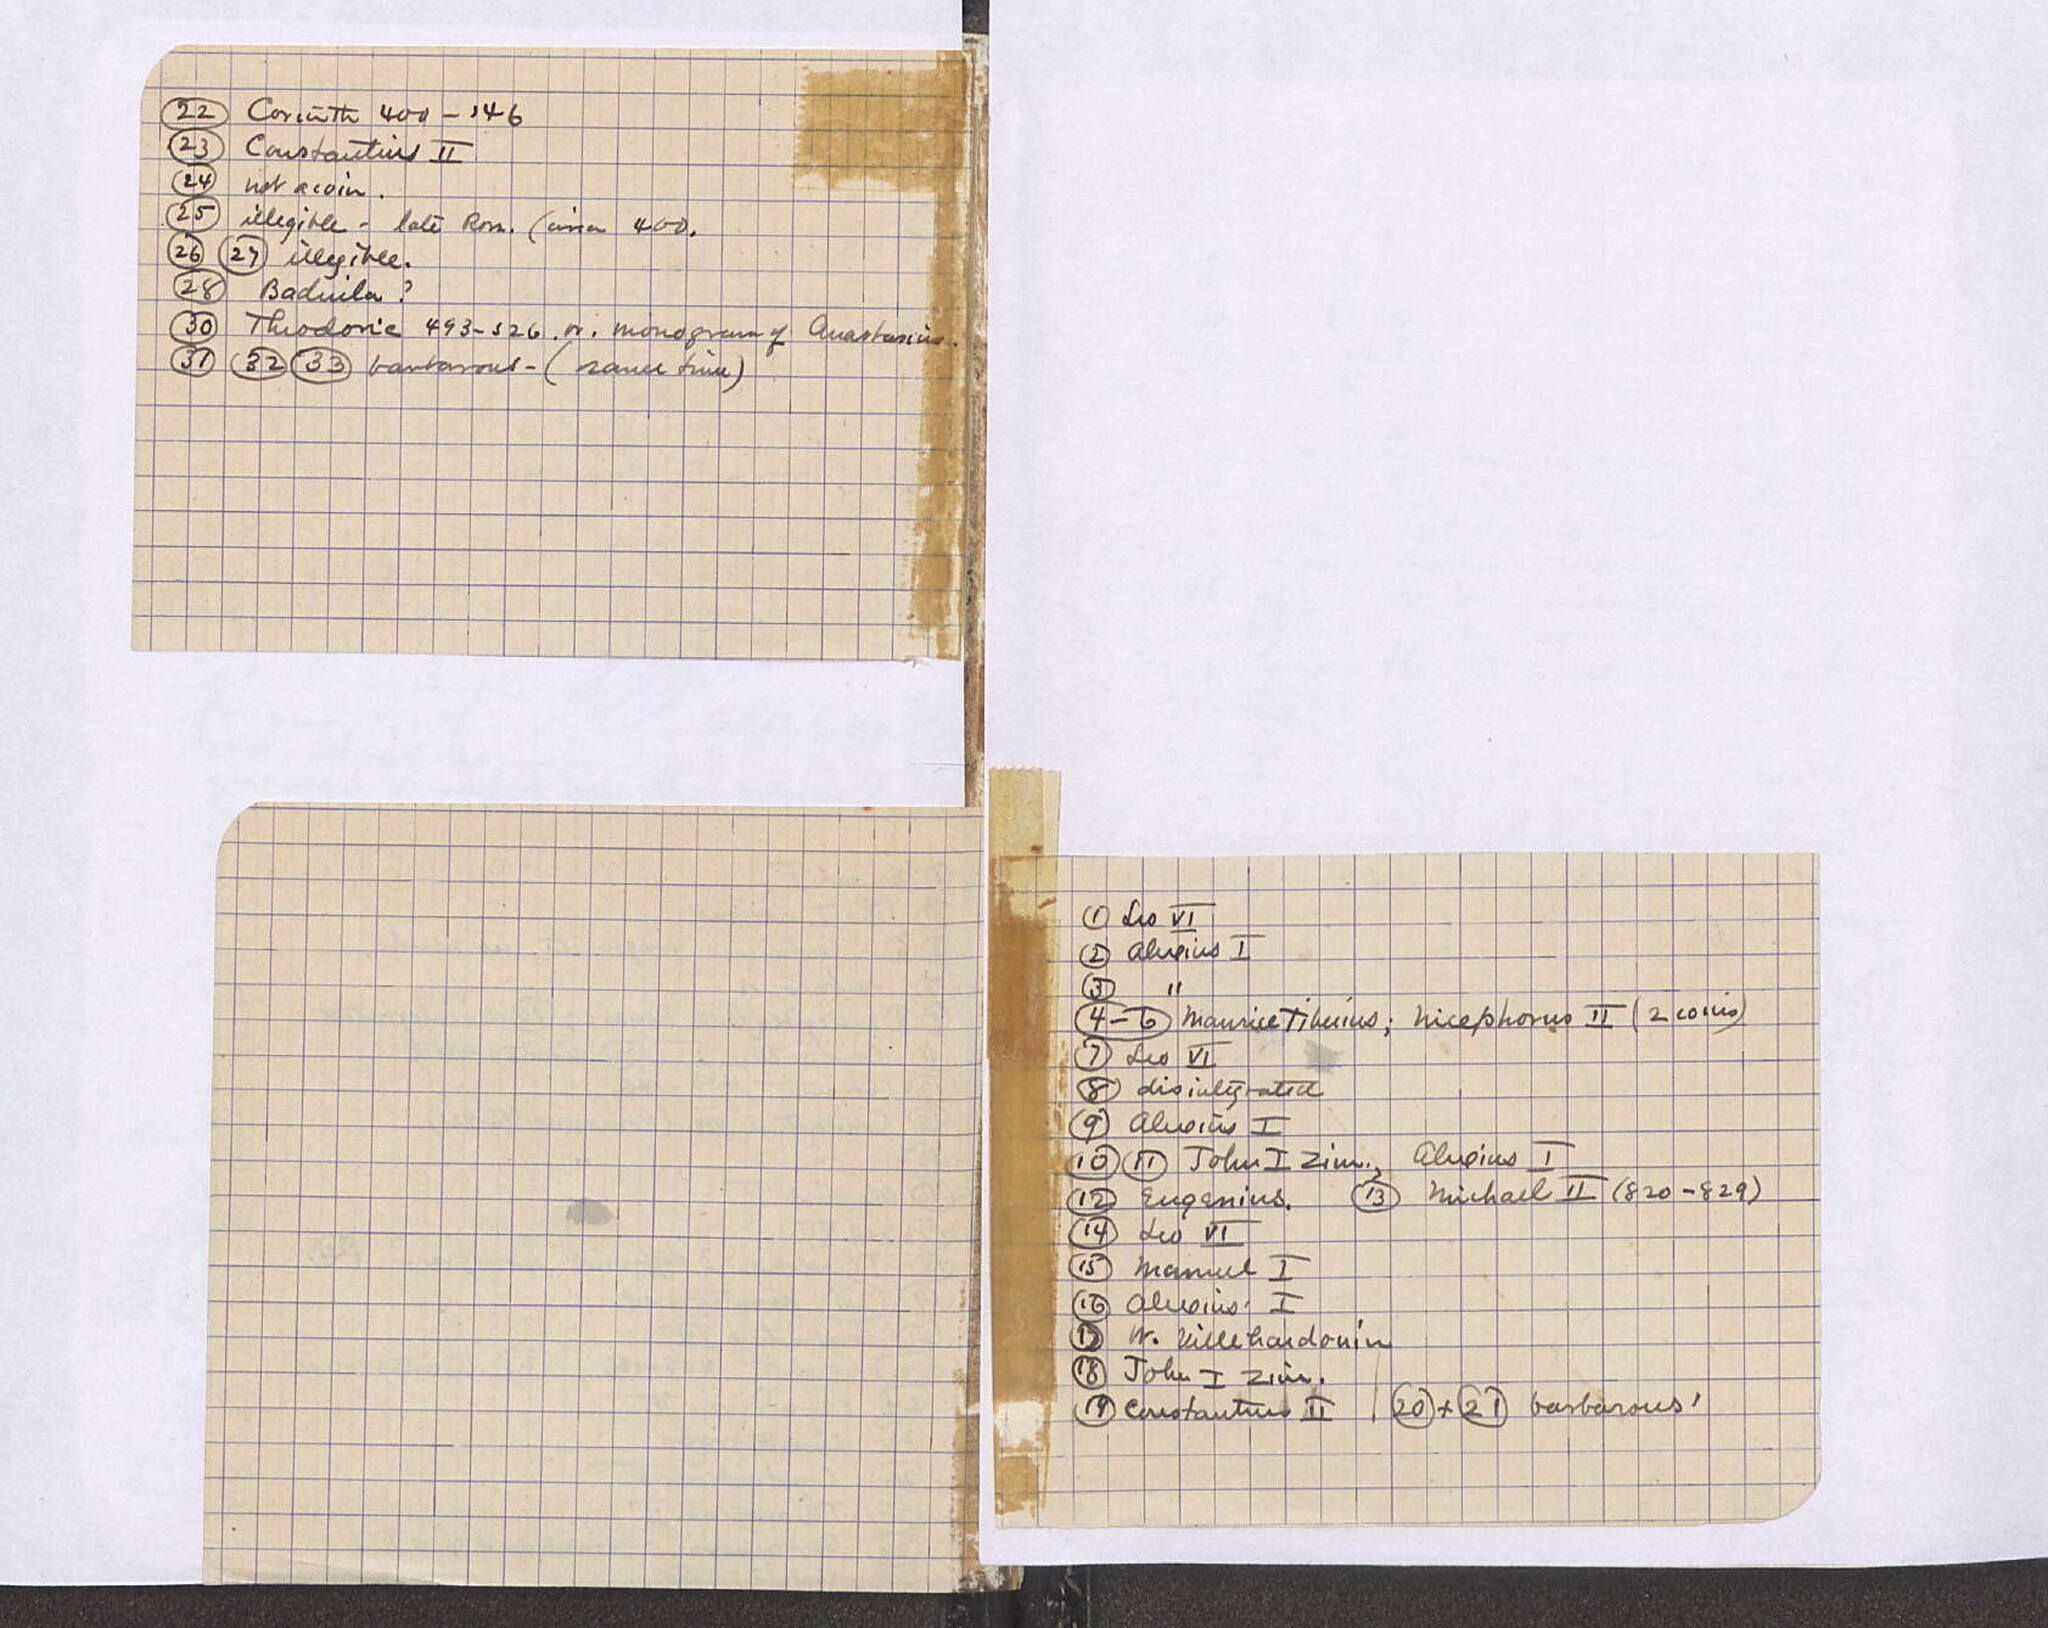 22 Corinth 400-146
23 Constantius II
24 not a coin.
25 illegible - late Rom. (circa 400.
26 27 illegible.
28 Baduila?
30 Theodoric 493-526. w. monogram of Anastasius.
31 32 33 barbarous - (same time)
1 Leo VI
2 Alexius I
3 "
4-6 Maurice Tiberius; Nicephorus II (2 coins)
7 Leo VI
8 disintegrated
9 Alexius I
10 11 John I Zim., Alexius I
12 Eugenius. 13 Michael II (820-829)
14 Leo VI
15 Manuel I
16 Alexius I
17 W. Villehardouin
18 John I Zim.
19 Constantius II | 20 + 21 barbarous'